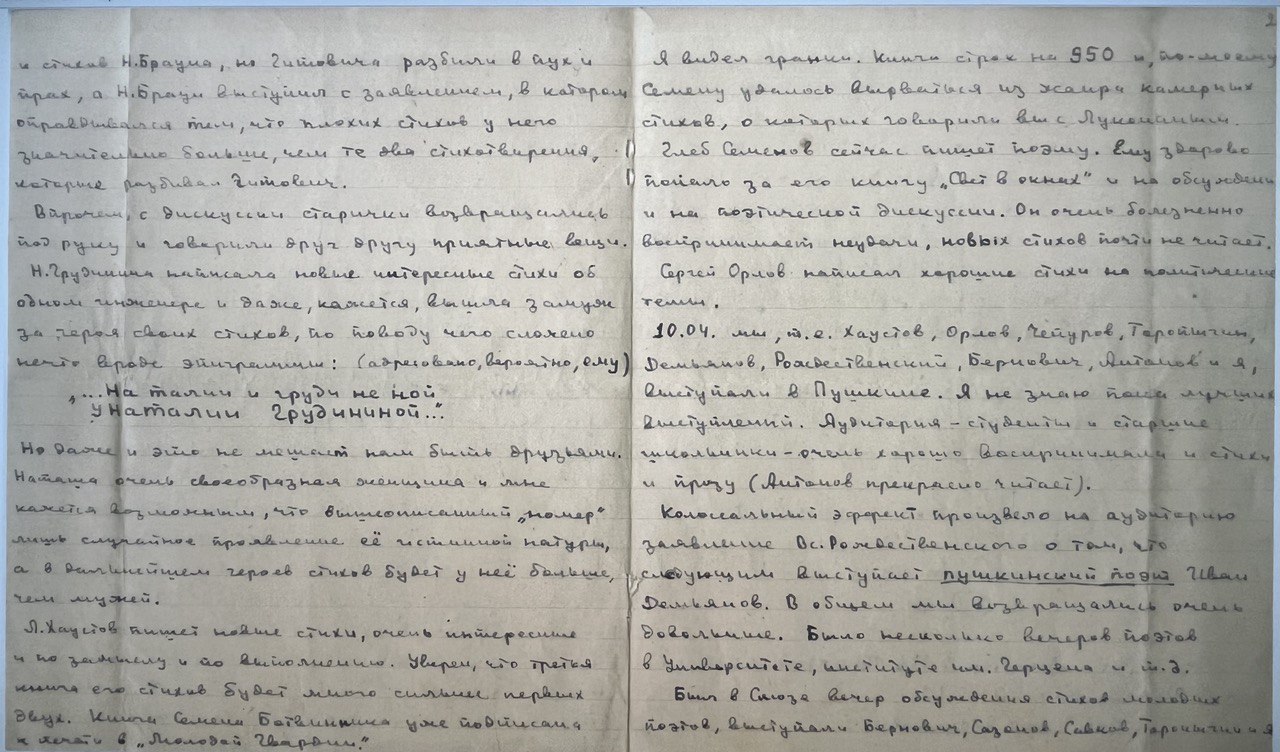 и стихов Н.Брауна, но Гитовича разбили в пух и
прах, а Н.Браун выступил с заявлением, в котором
оправдывался тем, что плохих стихов у него
значительно больше, чем те два стихотворения,
которые разбивал Гитович.
Впрочем, с дискуссии старички возвращались
под руку и говорили друг другу приятные вещи.
Н.Грудинина написала новые интересные стихи об
одном инженере и даже, кажется, вышла замуж
за героя своих стихов, по поводу чего сложено
нечто вроде эпиграммы: (адресовано, вероятно, ему)
„...На талии и груди не ной
У Наталии Грудининой..."
Но даже и это не мешает нам быть друзьями.
Наташа очень своеобразная женщина и мне
кажется возможным, что вышеописанный „номер"
лишь случайное проявление её истинной натуры,
а в дальнейшем героев стихов будет у неё больше,
чем мужей.
Л.Хаустов пишет новые стихи, очень интересные
и по замыслу и по выполнению. Уверен, что третья
книга его стихов будет много сильнее первых
двух. Книга Семена Ботвинника уже подписана
к печати в „Молодой Гвардии."
2
Я видел гранки. Книга строк на 950 и, по-моему
Семену удалось вырваться из жанра камерных
стихов, о которых говорили вы с Лукониным.
Глеб Семенов сейчас пишет поэму. Ему здорово
попало за его книгу „Свет в окнах" и на обсуждении
и на поэтической дискуссии. Он очень болезненно
воспринимает неудачи, новых стихов почти не читает.
Сергей Орлов написал хорошие стихи на политические
темы.
10.04. мы, т.е. Хаустов, Орлов, Чепуров, Торопыгин,
Демьянов, Рождественский, Бернович, Антонов и я,
выступали в Пушкине. Я не знаю пока лучших
выступлений. Аудитория – студенты и старшие
школьники – очень хорошо воспринимали и стихи
и прозу (Антонов прекрасно читает).
Колоссальный эффект произвело на аудиторию
заявление Вс.Рождественского о том, что
следующим выступает пушкинский поэт Иван
Демьянов. В общем мы возвращались очень
довольные. Было несколько вечеров поэтов
в Университете, институте им. Герцена и т.д.
Был в Союзе вечер обсуждения стихов молодых
поэтов, выступали Бернович, Сазонов, Савков, Торопыгин и я